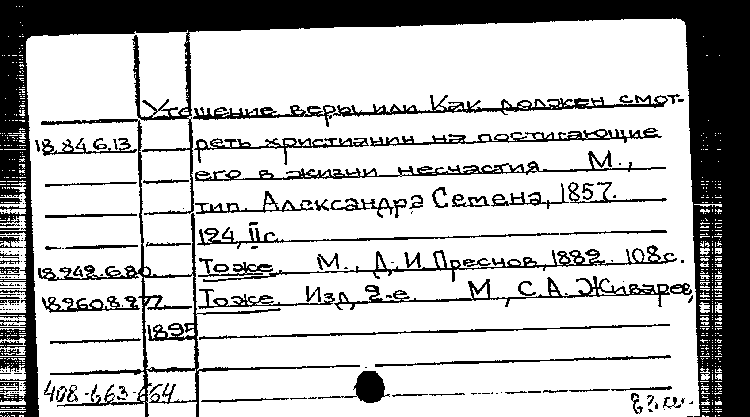 Утешение веры или Как должен смот-
18.84.6.13 реть христианин на постигающие
его в жизни несчастия. М.,
тип. Александра Семена, 1857.
124, II с.
18.242.6.80 То же. М., Д. И. Преснов, 1882. 108 с.
18.260.8.277 То же. Изд. 2-е. М., С. А. Живарев,
1895
408-663-664